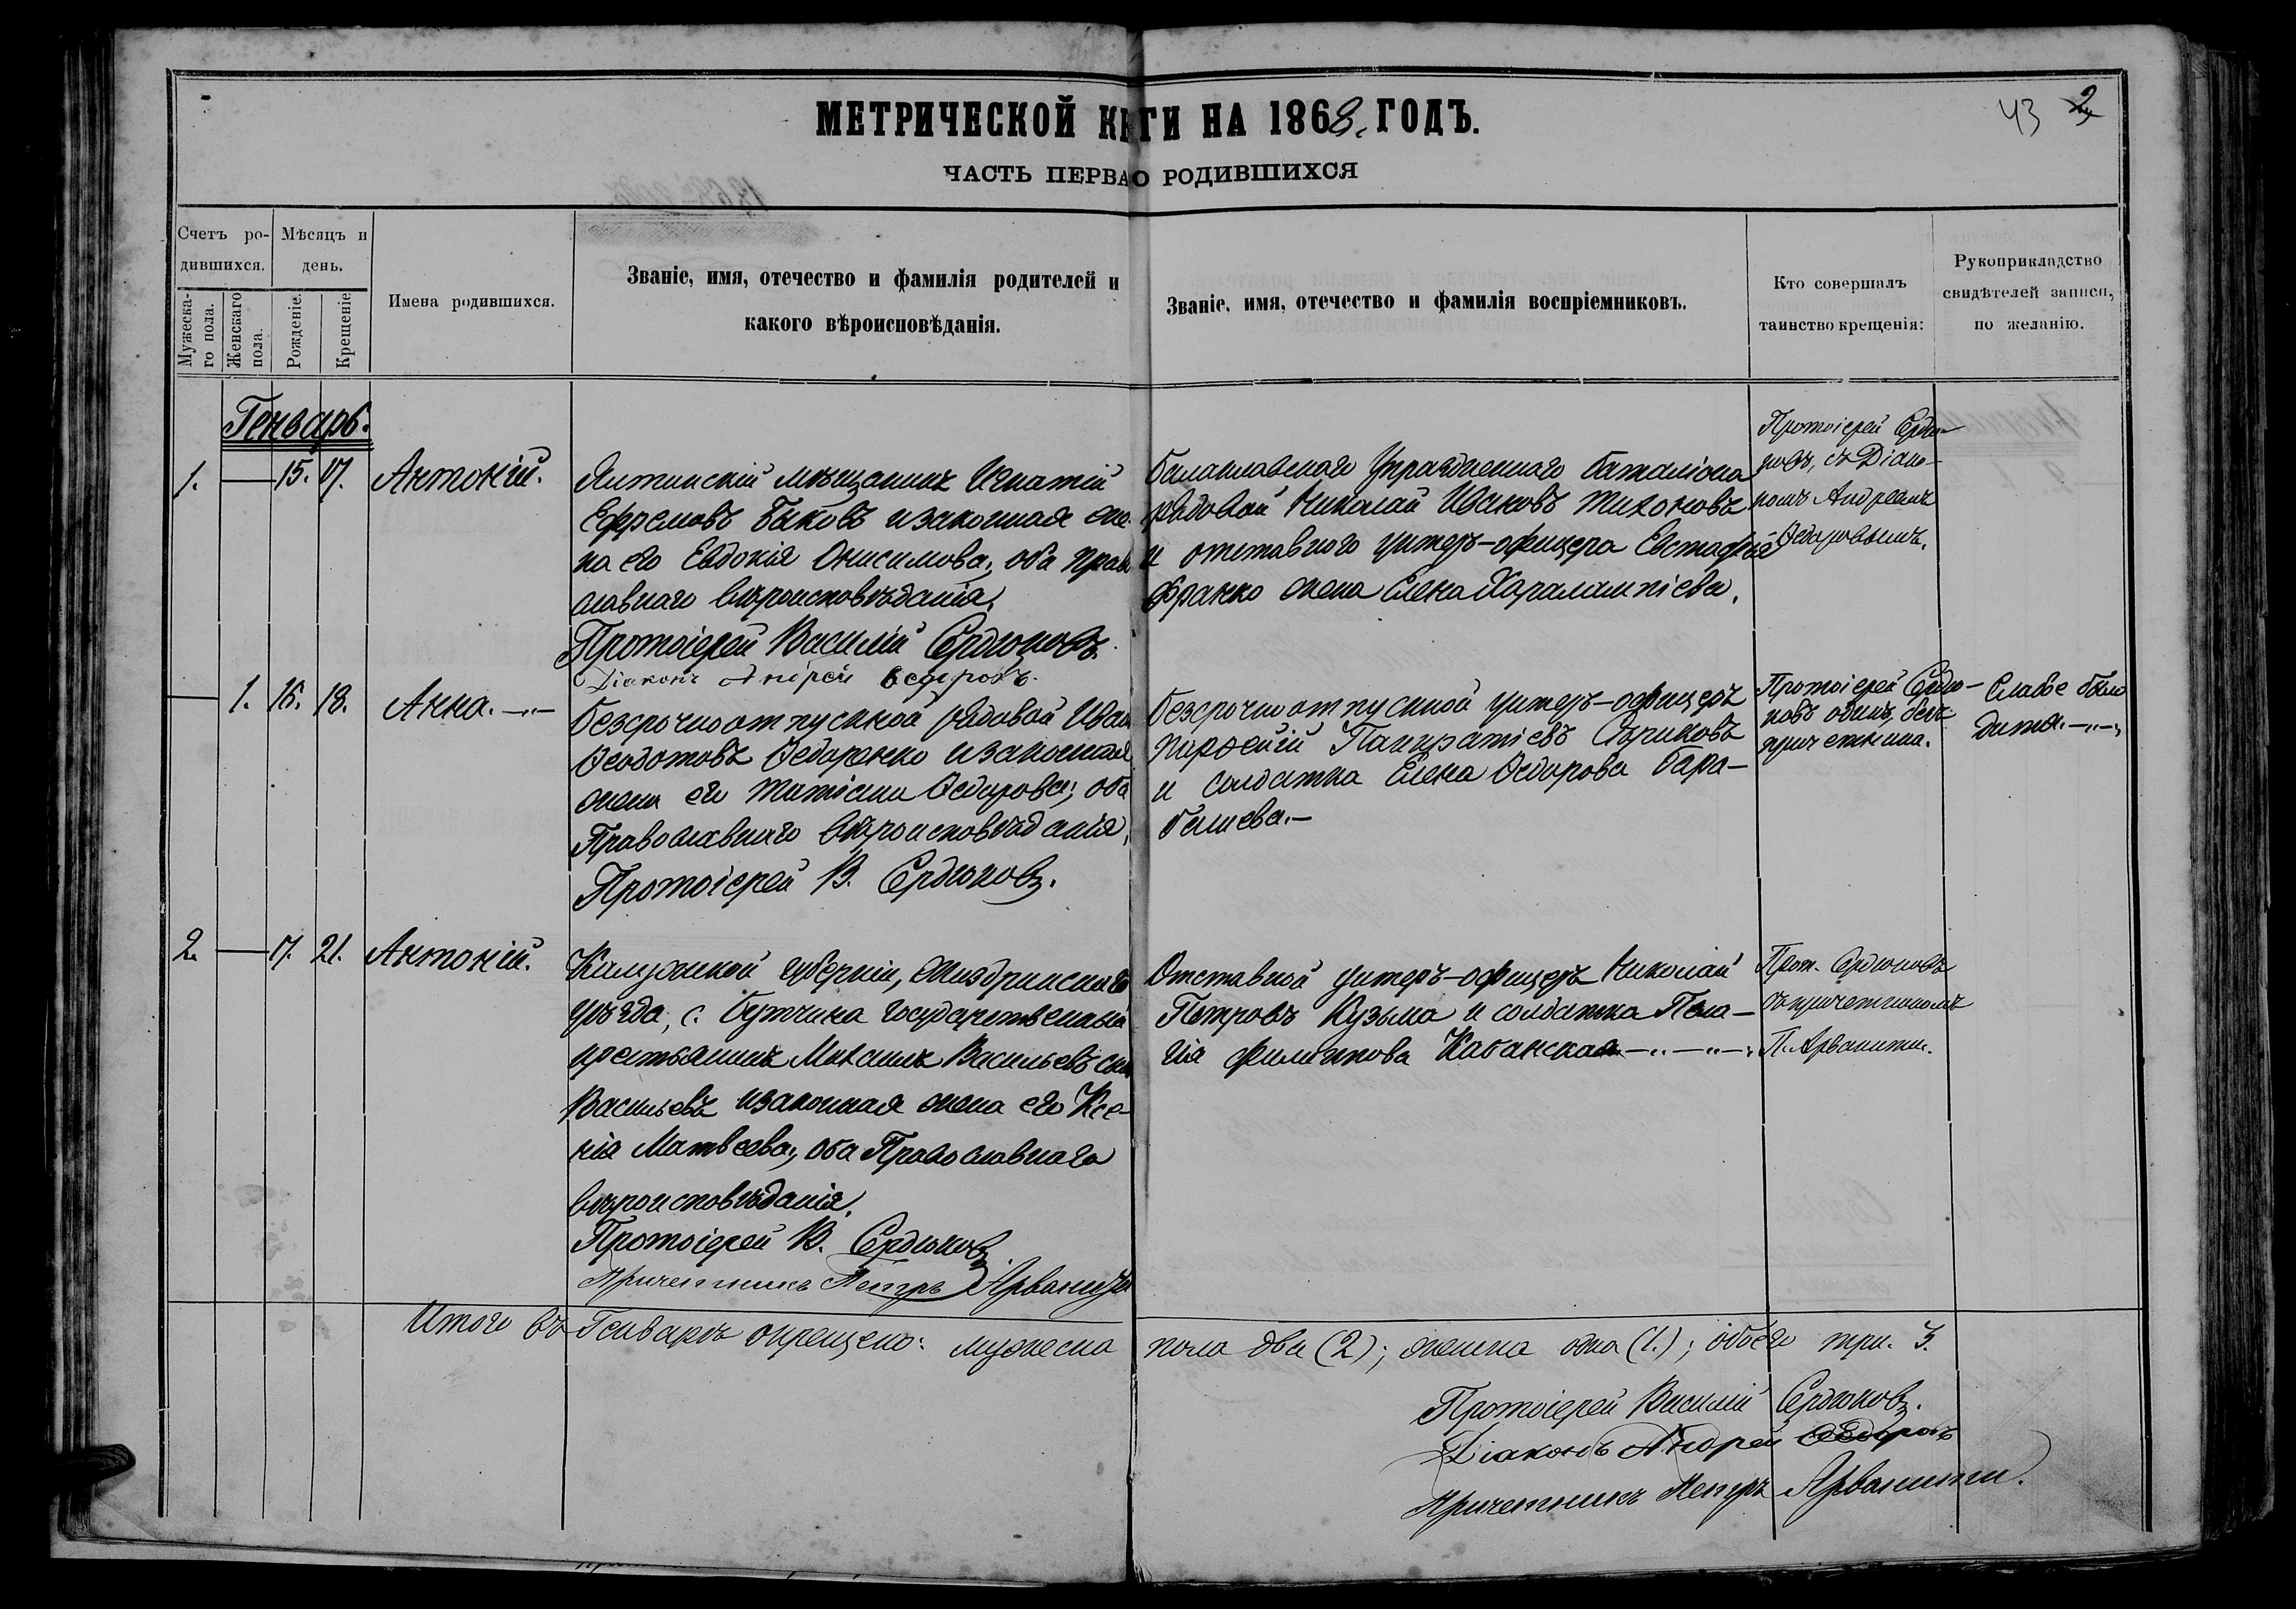 МЕТРИЧЕСКОЙ КНГИ НА 1868. ГОДЪ.
43 2
ЧАСТЬ ПЕРВАО РОДИВШИХСЯ
Счетъ ро-
дившихся.
Мѣсяцъ и
день.
Мужеска-
го пола.
Женскаго
пола.
Рожденіе.
Крещеніе
Имена родившихся.
Званіе, имя, отечество и фамилія родителей и
какого вѣроисповѣданія.
Званіе, имя, отечество и фамилія воспріемниковъ.
Кто совершалъ
таинство крещенія:
Рукоприкладство
свидѣтелей записи,
по желанію.
Генварь.
1. — 15. 17. Антоній.
Ялтинскій мѣщанинъ Игнатій
Ефремовъ Быковъ и законная же-
на его Евдокія Онисимова, оба право
славнаго вѣроисповѣданія.
Протоіерей Василій Сердюковъ.
Діаконъ Андрей Ѳедоровъ.
Балаклавскаго Упраздненнаго баталіона
рядовой Николай Ивановъ Тихоновъ
и отставного унтеръ-офицера Евстафія
Франко жена Елена Харалампіева.
Протоіерей Сердю-
ковъ, съ Діако-
номъ Андреемъ
Ѳедоровымъ.
— 1. 16. 18. Анна.
безсрочноотпускной рядовой Иван
Ѳеодотовъ Ѳедоренко и законная
жена его Татіана Ѳедорова; оба
Православнаго вѣроисповѣданія.
Протоіерей В. Сердюковъ.
безсрочноотпускной унтеръ-офицеръ
Панкратіевъ
и солдатка Елена Ѳедорова Бара-
башева.—
Протоіерей Сердю-
ковъ одинъ, безъ
причетника.
Слабое было
дитя.
2. — 17. 21. Антоній.
Калужской губерніи, Жиздринскаго
уѣзда, с. Бутчина государственный
крестьянинъ Михаилъ Васильевъ сын
Васильевъ и законная жена его Ксе-
нія Матвеева, оба Православнаго
вѣроисповѣданія.
Протоіерей В. Сердюковъ
Причетникъ Петръ Арванити
Отставной унтеръ-офицеръ Николай
Петровъ Кузьма и солдатка Пела-
гія Филипова Кабанская
Прот. Сердюковъ
съ причетникомъ
П. Арванити.
Итого въ Генварѣ окрещено: мужеска пола два (2); женска одна (1.); обоего три. 3.
Протоіерей Василій Сердюковъ.
Діаконъ Андрей Ѳедоровъ
Причетникъ Петръ Арванити.